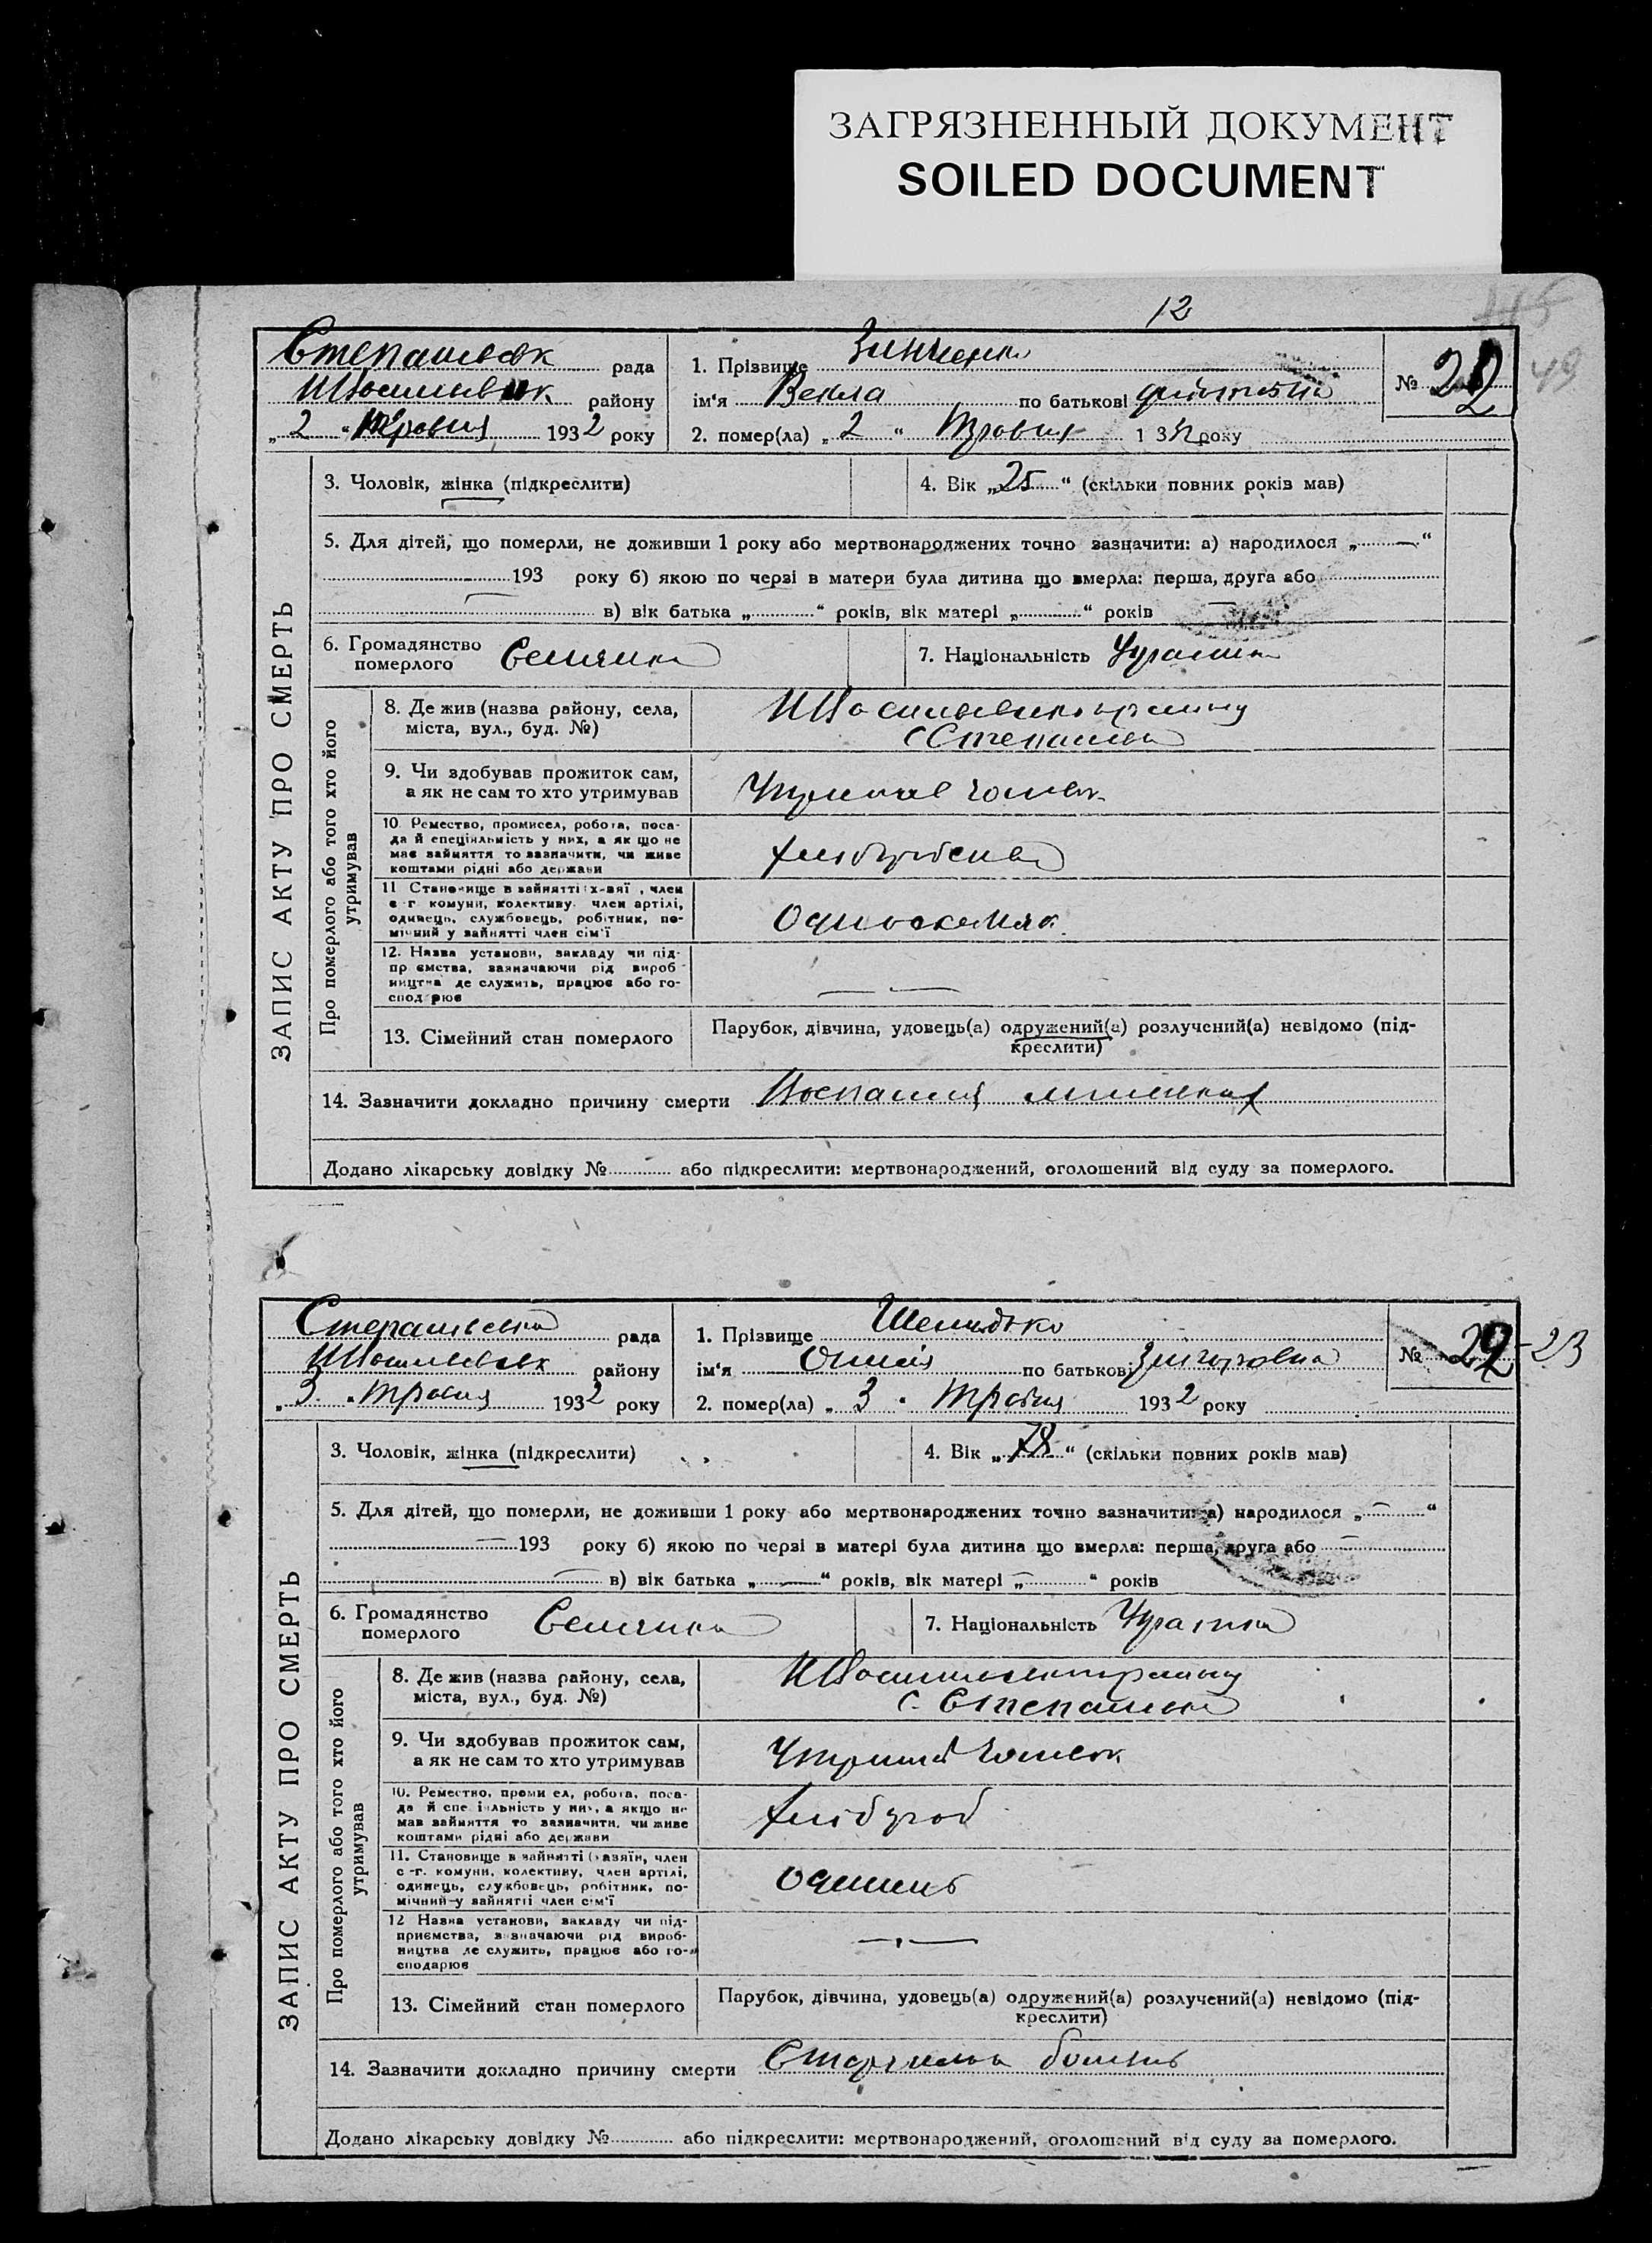 ЗАГРЯЗНЕННЫЙ ДОКУМЕНТ
SOILED DOCUMENT
12
49
рада
району
„ 2 “ 1932 року
1. Прізвище Зинченко
ім'я Векла по батькові
2. помер(ла) „ 2 “ Травня 1 32 року
№ 22
3. Чоловік, жінка (підкреслити)
4. Вік „ 25 “ (скільки повних років мав)
5. Для дітей, що померли, не доживши 1 року або мертвонароджених точно зазначити: а) народилося „ — “
193 року б) якою по черзі в матери була дитина що вмерла: перша, друга або
в) вік батька „ “ років, вік матері „ “ років
6. Громадянство померлого Селянка
7. Національність
ЗАПИС АКТУ ПРО СМЕРТЬ
Про померлого або того хто його утримував
8. Де жив (назва району, села,
міста, вул., буд. №)
с Степанівка
9. Чи здобував прожиток сам,
а як не сам то хто утримував
Утримав чоловік
10. Ремество, промисел, робота, поса-
да й спеціяльність у них, а як що не
має зайняття то зазначити, чи живе
коштами рідні або держави
11 Становище в зайнятті х-зяї , член
с-г. комуни, колективу, член артілі,
одинець, службовець, робітник, по-
мічний у зайнятті член сім'ї
12. Назва установи, закладу чи під-
пр ємства, зазначаючи рід вироб-
ництва де служить, працює або го-
сподарює
13. Сімейний стан померлого
Парубок, дівчина, удовець(а) одружений(а) розлучений(а) невідомо (під-
креслити)
14. Зазначити докладно причину смерти
Додано лікарську довідку № або підкреслити: мертвонароджений, оголошений від суду за померлого.
рада
району
„ 3 “ Травня 1932 року
1. Прізвище
ім'я по батькові
2. помер(ла) „ 3 “ Травня 1932 року
№ 22-23
3. Чоловік, жінка (підкреслити)
4. Вік „ 78 “ (скільки повних років мав)
5. Для дітей, що померли, не доживши 1 року або мертвонароджених точно зазначити: а) народилося „ — “
— 193 року б) якою по черзі в матері була дитина що вмерла: перша, друга або —
— в) вік батька „ — “ років, вік матері „ — “ років
6. Громадянство померлого Селянка
7. Національність
ЗАПИС АКТУ ПРО СМЕРТЬ
Про померлого або того хто його утримував
8. Де жив (назва району, села,
міста, вул., буд. №)
с. Степанівка
9. Чи здобував прожиток сам,
а як не сам то хто утримував
Утримав чоловік
10. Ремество, проми ел, робота, поса-
да й спе іяльність у них, а якщо не
має зайняття то зазначити, чи живе
коштами рідні або держави
хлібороб
11. Становище в зайнятті ( азяїн, член
с-г. комуни, колективу, член артілі,
одинець, службовець, робітник, по-
мічний у зайнятті член сім'ї
одинець
12 Назва установи, закладу чи під-
приємства, зазначаючи рід вироб-
ництва де служить, працює або го-
сподарює
13. Сімейний стан померлого
Парубок, дівчина, удовець(а) одружений(а) розлучений(а) невідомо (під-
креслити)
14. Зазначити докладно причину смерти
Додано лікарську довідку № або підкреслити: мертвонароджений, оголошений від суду за померлого.